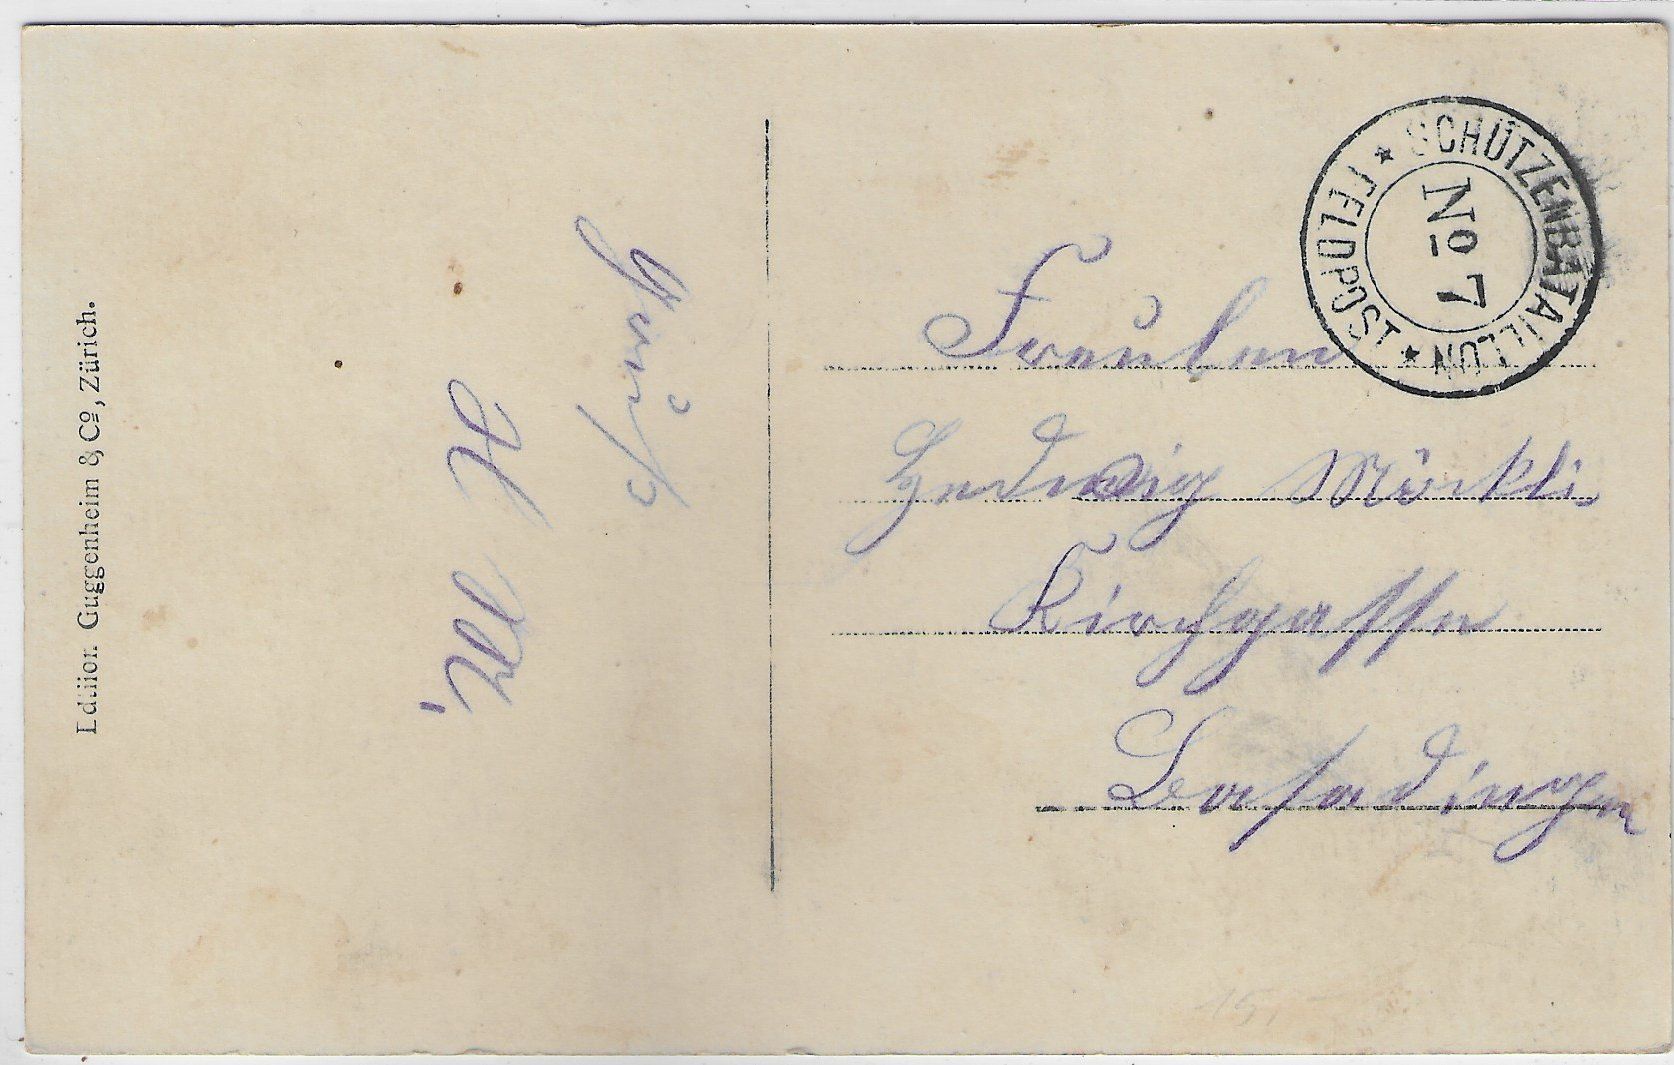 Edition Guggenheim & Co, Zürich.
Gruß
SCHÜTZENBATAILLON
No 7
FELDPOST
Fräulein
Hedwig Möckli
Kirchgasse
Basadingen